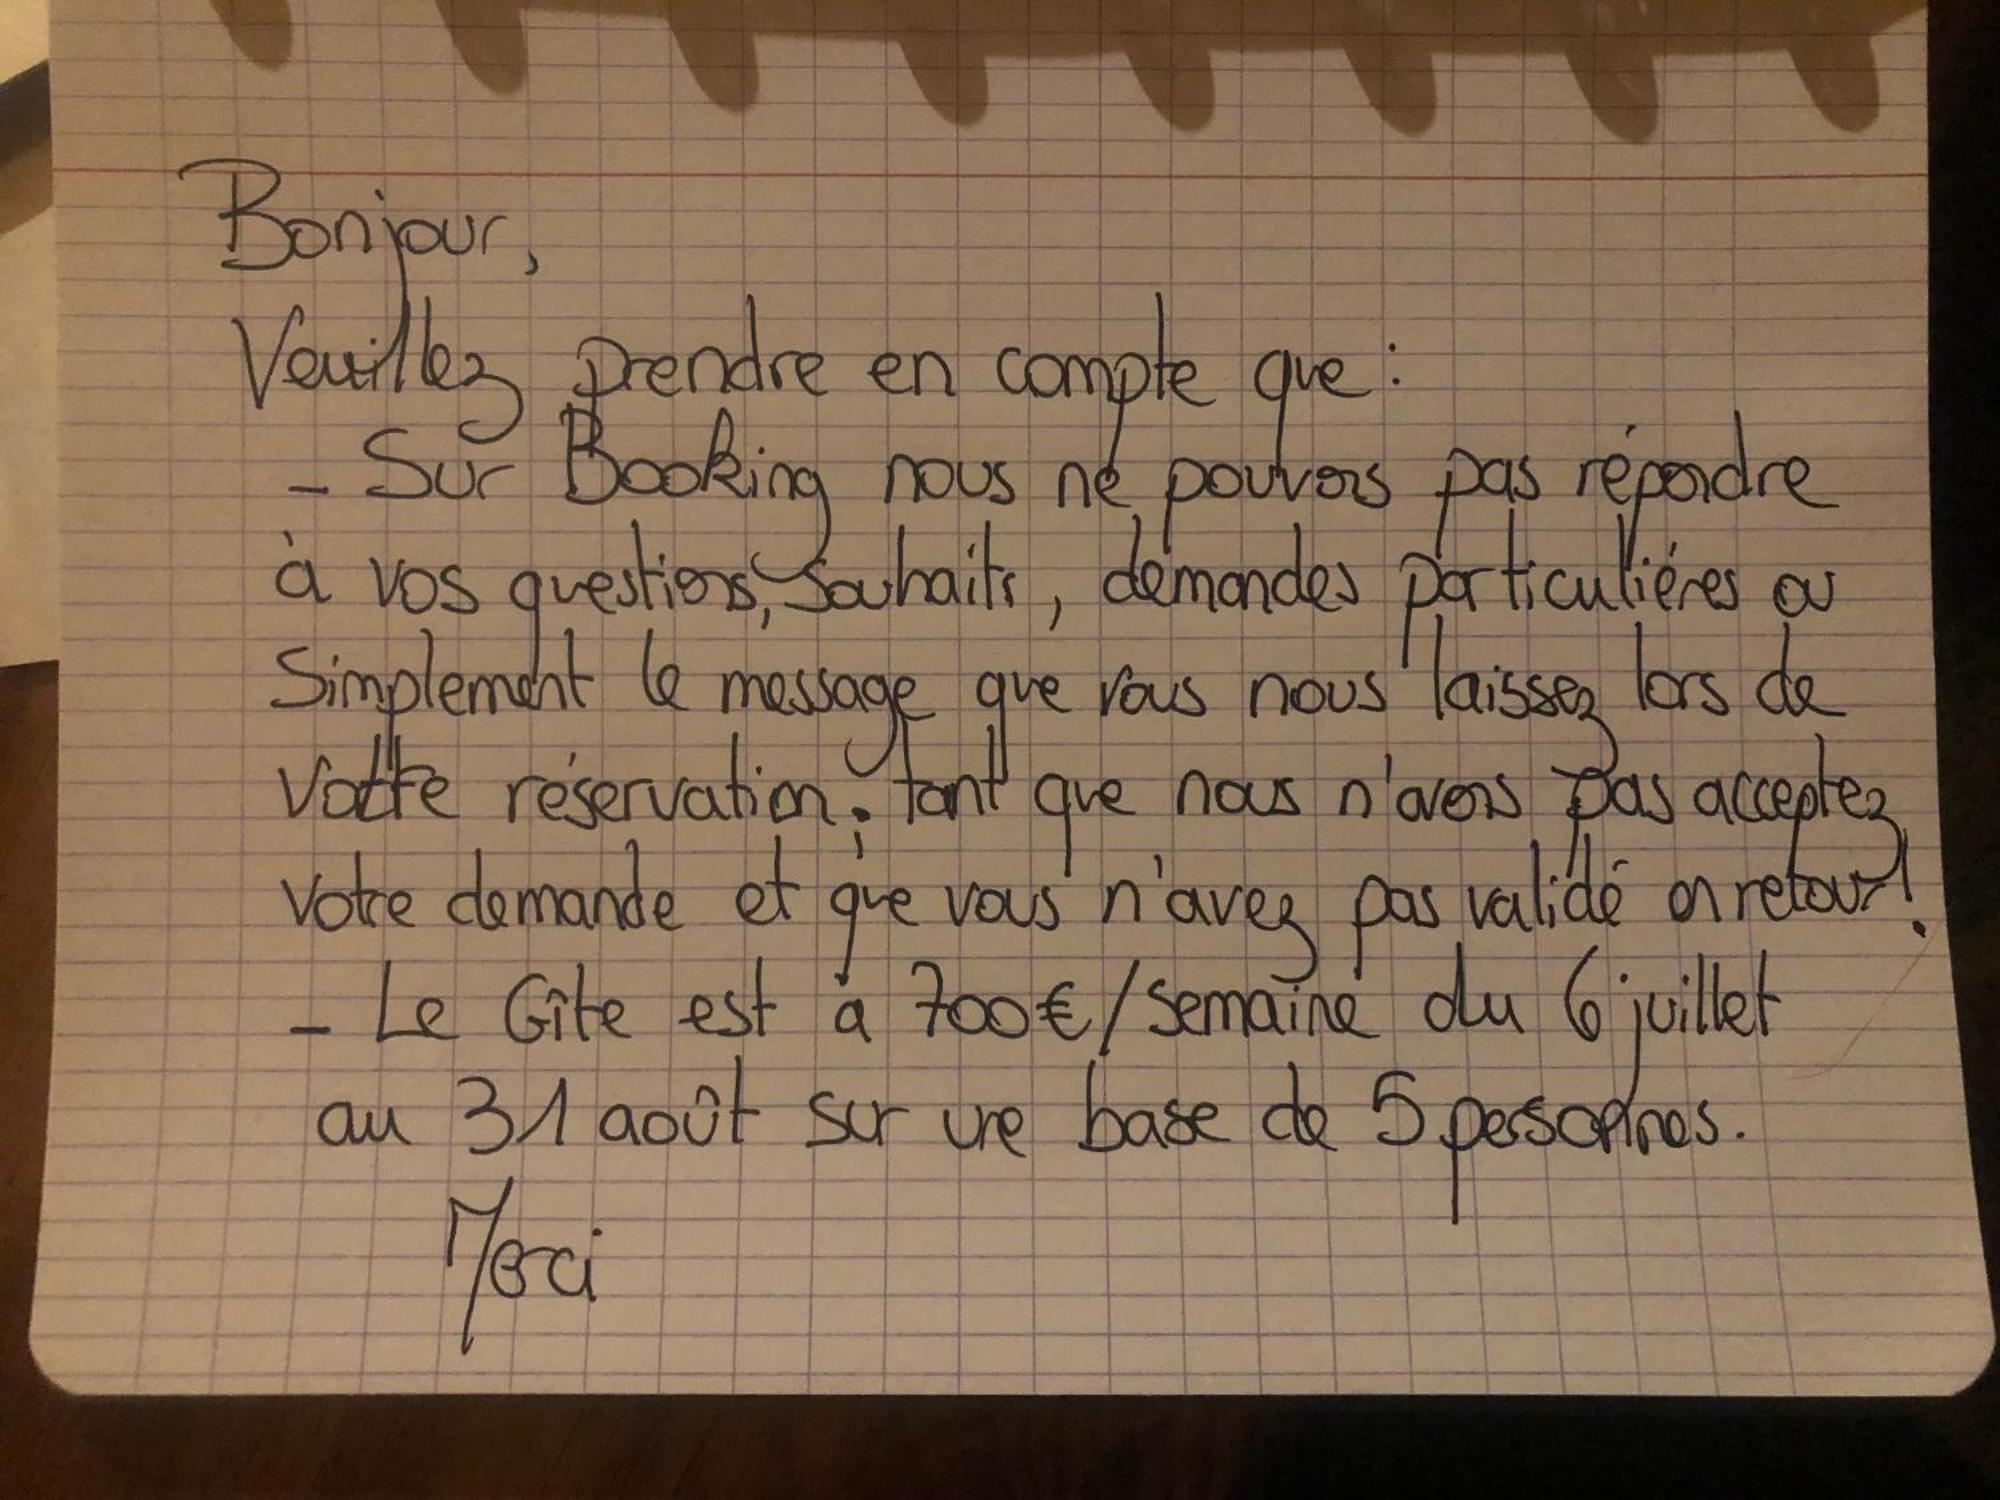 Bonjour,
Veuillez prendre en compte que :
- Sur Booking nous ne pouvons pas répondre
à vos questions, souhaits, demandes particuliéres ou
Simplement le message que vous nous laissez lors de
votre réservation ; tant que nous n'avons pas acceptez
votre demande et que vous n'avez pas validé en retour !
- Le Gîte est à 700€/semaine du 6 juillet
au 31 août sur une base de 5 personnes.
Merci